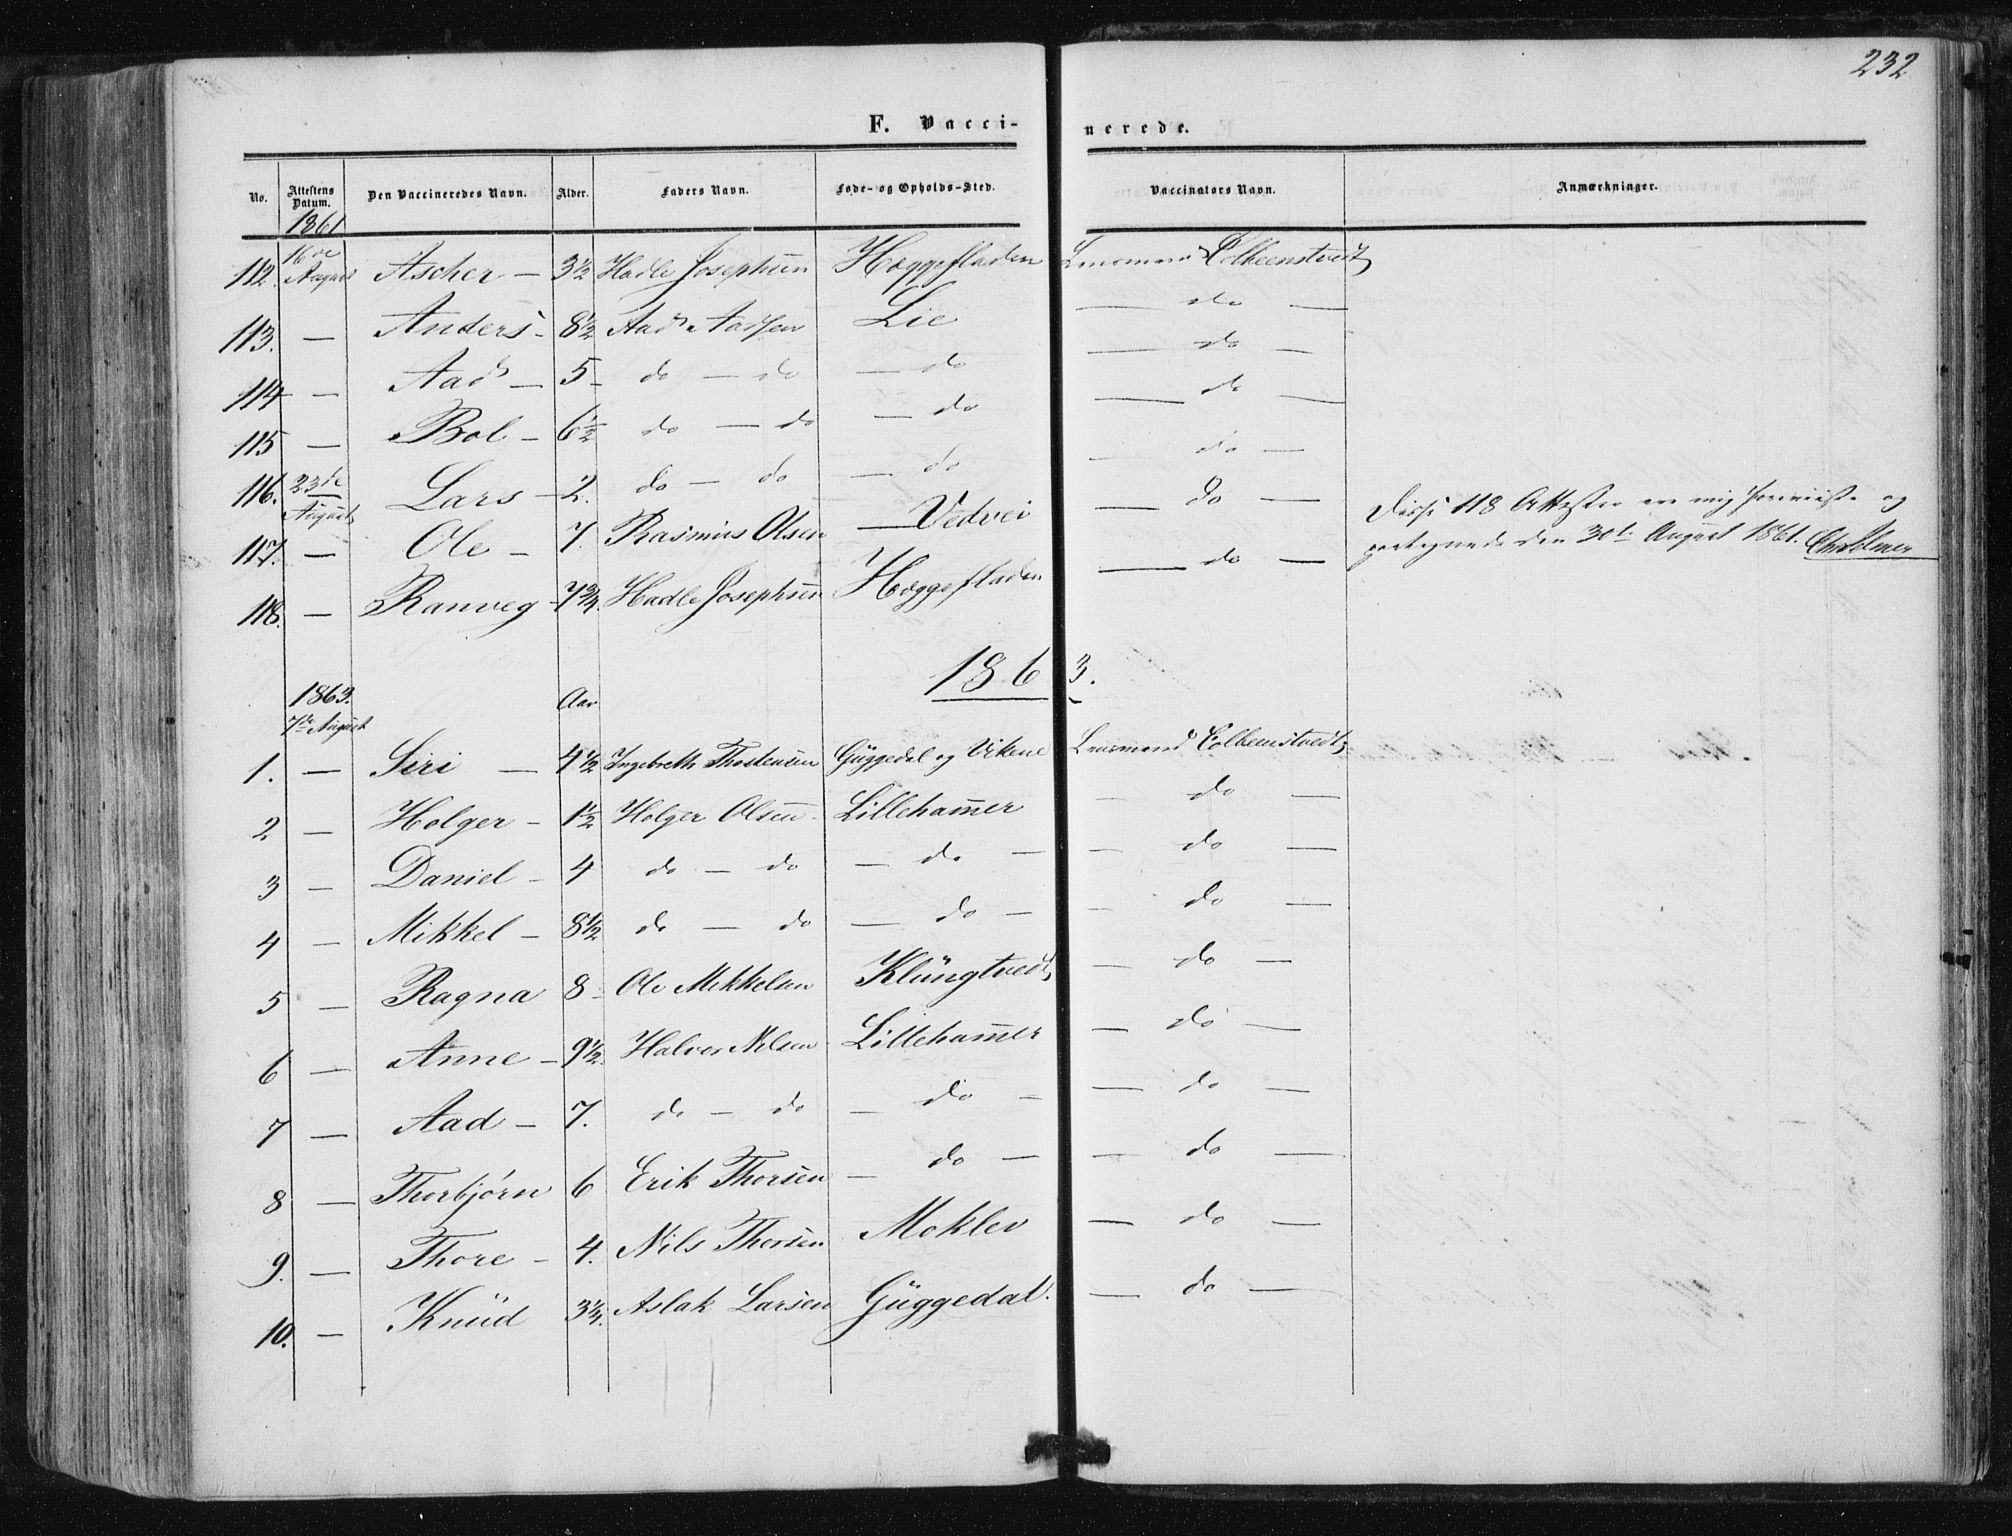 232
F. Vacci- nerede.
No. Attestens Datum. Den Vaccineredes Navn. Alder. Faders Navn. Føde- og Opholds-Sted. Vaccinators Navn. Anmærkninger.
1861
112. 16de August Ascher — 3½ Hadle Josephsen Heggefladen Lensmand
113. — Anders — 8½ Aad Aadsen Lie — do —
114 — Aad — 5 — do — do — do — do —
115 — Bol — 6½ do — do — do — do —
116. 23de August Lars — 2. do — do — do — do —
117. — Ole — 7. Rasmus Olsen — Vedvei — do — Disse 118 Attester ere mig foreviste og
118. — Ranveg — 7¾ Hadle Josephsen Heggefladen — do — paategnede den 30t August 1861.
1863.
1863. Aar
7de August
1. — Siri — 4½ Ingebreth Thostensen Güggedal og Vikene Lensmand
2 — Holger — 1½ Holger Olsen — Lillehammer — do —
3 — Daniel — 4 do — do — do — — do —
4 — Mikkel — 8½ do — do — do — — do —
5 — Ragna 8 — Ole Mikkelsen Klüngtvedt — do —
6 — Anne — 9½ Halvor Nilsen Lillehammer — do —
7 — Aad — 7. do — do — do — — do —
8 — Thorbjørn 6 Erik Thorsen — do — — do —
9. — Thore — 4. Nils Thorsen Moklev — do —
10. — Knüd 3¼ Aslak Larsen Güggedal. — do —